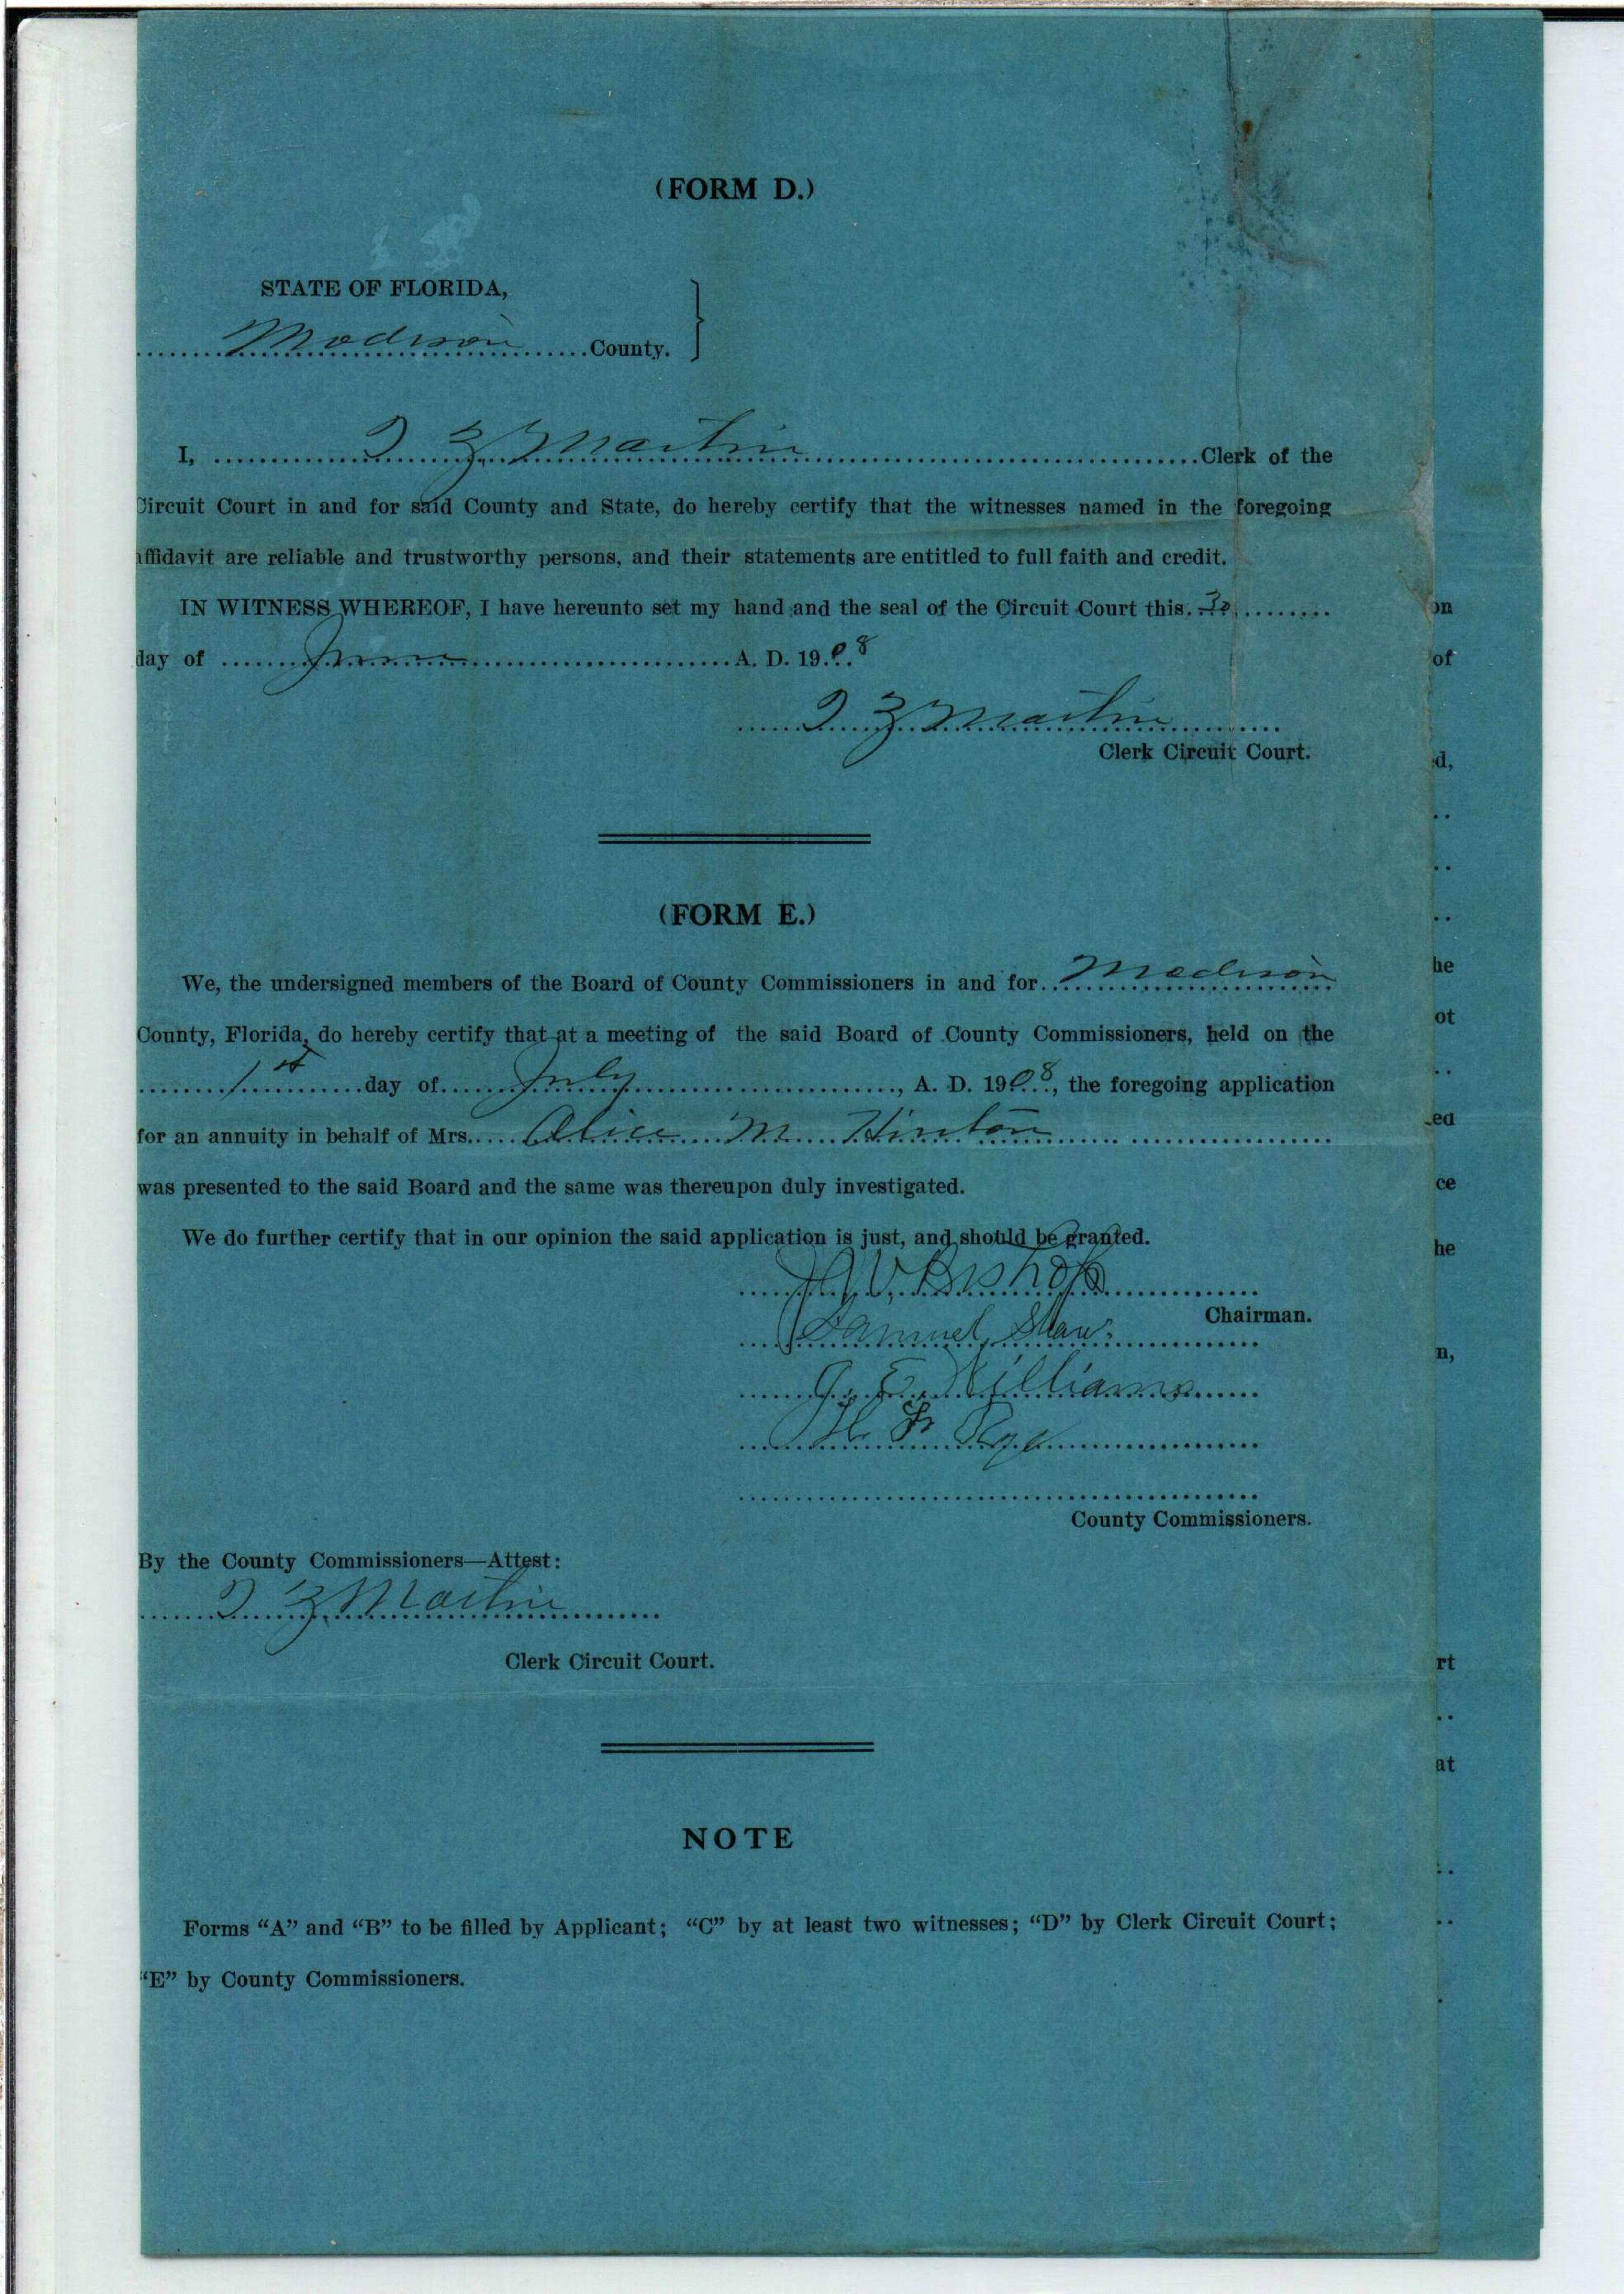 (FORM D.)
STATE OF FLORIDA,
Madison County.
I, T Z Martin Clerk of the
Circuit Court in and for said County and State, do hereby certify that the witnesses named in the foregoing
affidavit are reliable and trustworthy persons, and their statements are entitled to full faith and credit.
IN WITNESS WHEREOF, I have hereunto set my hand and the seal of the Circuit Court this 30
day of June A. D. 1908
T Z Martin
Clerk Circuit Court.
(FORM E.)
We, the undersigned members of the Board of County Commissioners in and for Madison
County, Florida, do hereby certify that at a meeting of the said Board of County Commissioners, held on the
1st day of July, A. D. 1908, the foregoing application
for an annuity in behalf of Mrs. Alice M. Hinton
was presented to the said Board and the same was thereupon duly investigated.
We do further certify that in our opinion the said application is just, and should be granted.
Bishop
Chairman.
Samuel Shaw
Williams
County Commissioners.
By the County Commissioners—Attest:
T Z Martin
Clerk Circuit Court.
NOTE
Forms “A” and “B” to be filled by Applicant; “C” by at least two witnesses; “D” by Clerk Circuit Court;
“E” by County Commissioners.
on
of
d,
he
ot
ed
ce
he
n,
rt
at